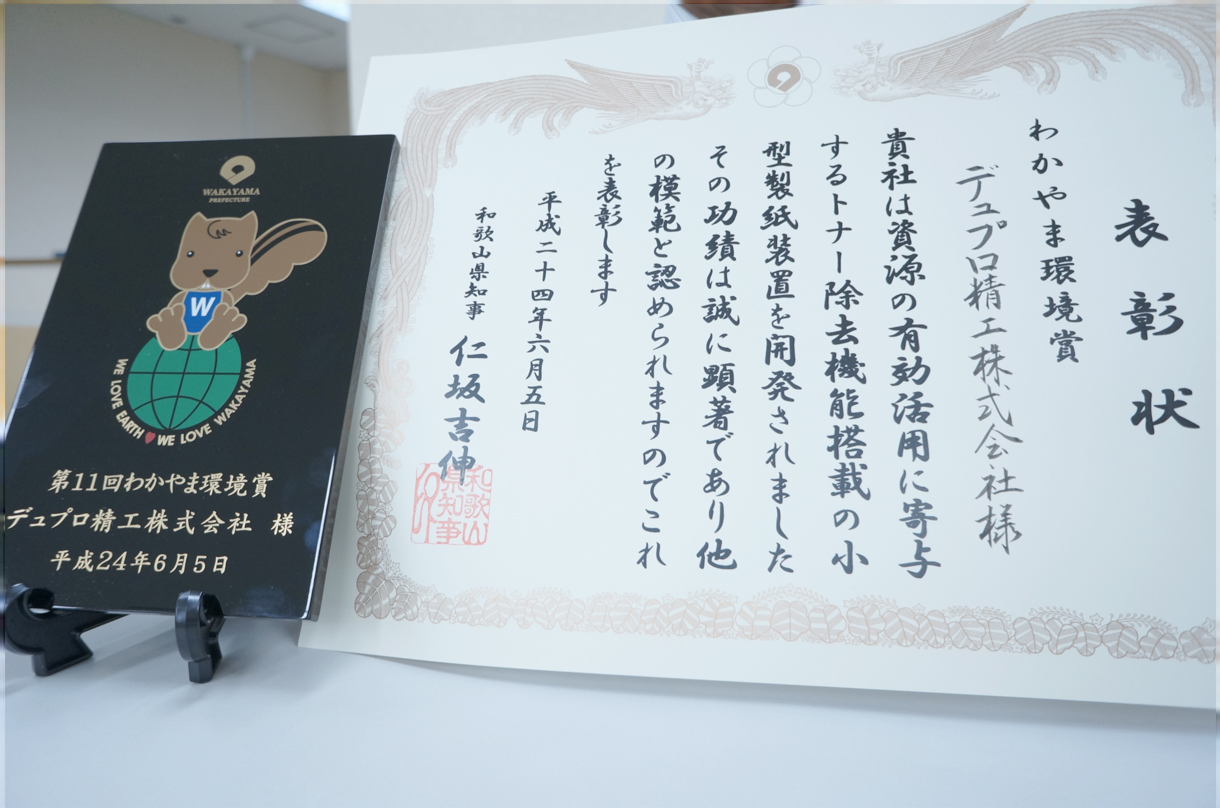 WAKAYAMA
PREFECTURE
W
WE LOVE EARTH WE LOVE WAKAYAMA
第11回わかやま環境賞
デュプロ精工株式会社 様
平成24年6月5日
表彰状
わかやま環境賞
デュプロ精工株式会社様
貴社は資源の有効活用に寄与
するトナー除去機能搭載の小
型製紙装置を開発されました
その功績は誠に顕著であり他
の模範と認められますのでこれ
を表彰します
平成二十四年六月五日
和歌山県知事 仁坂吉伸
和歌山
県知事
印